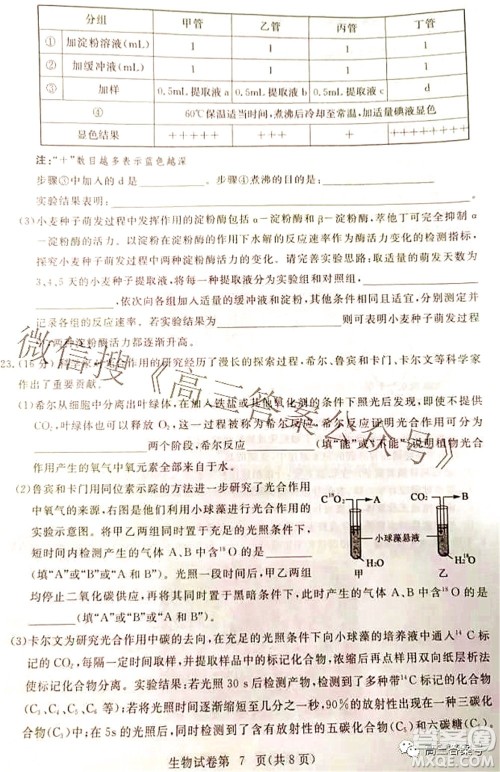 分组 甲管 乙管 丙管 丁管
① 加淀粉溶液(mL) 1 1 1 1
② 加缓冲液(mL) 1 1 1 1
③ 加样 0.5mL提取液a 0.5mL提取液b 0.5mL提取液c d
④ 60℃保温适当时间,煮沸后冷却至常温,加适量碘液显色
显色结果 +++++ +++ + ++++++++
注:“+”数目越多表示蓝色越深
步骤③中加入的d是 。步骤④煮沸的目的是:
实验结果表明:
(3)小麦种子萌发过程中发挥作用的淀粉酶包括α-淀粉酶和β-淀粉酶,萃他丁可完全抑制α
-淀粉酶的活力。以淀粉在淀粉酶的作用下水解的反应速率作为酶活力变化的检测指标,
探究小麦种子萌发过程中两种淀粉酶活力的变化。请完善实验思路:取适量的萌发天数为
3,4,5天的小麦种子提取液,将每一种提取液分为实验组和对照组,
,依次向各组加入适量的缓冲液和淀粉,其他条件相同且适宜,分别测定并
记录各组的反应速率。若实验结果为 则可表明小麦种子萌发过程
两种淀粉酶活力都逐渐升高。
23.(16分) 作用的研究经历了漫长的探索过程,希尔、鲁宾和卡门、卡尔文等科学家
作出了重要贡献。
(1)希尔从细胞中分离出叶绿体,在加入铁盐或其他氧化剂的条件下照光后发现,即使不提供
CO₂,叶绿体也可以释放O₂,这一过程被称为希尔反应。希尔反应证明光合作用可分为
两个阶段,希尔反应 (填“能”或“不能”)说明植物光合
作用产生的氧气中氧元素全部来自于水。
(2)鲁宾和卡门用同位素示踪的方法进一步研究了光合作用
中氧气的来源,右图是他们利用小球藻进行光合作用的
实验示意图。将甲乙两组同时置于充足的光照条件下,
短时间内检测产生的气体A、B中含¹⁸O的是
(填“A”或“B”或“A和B”)。光照一段时间后,甲乙两组
均停止二氧化碳供应,再将其同时置于黑暗条件下,此时产生的气体A、B中含¹⁸O的是
(填“A”或“B”或“A和B”)。
C¹⁸O₂ A CO₂ B
小球藻悬液
H₂O H₂¹⁸O
甲 乙
(3)卡尔文为研究光合作用中碳的去向,在充足的光照条件下向小球藻的培养液中通入¹⁴C标
记的CO₂,每隔一定时间取样,并提取样品中的标记化合物,浓缩后再点样到双向纸层析法
使标记化合物分离。实验结果:若光照30s后检测产物,检测到了多种带¹⁴C标记的化合物
(C₃、C₄、C₅、C₆等);若将光照时间逐渐缩短至几分之一秒,90%的放射性出现在一种三碳化
合物(C₃)中;在5s的光照后,同时检测到了含有放射性的五碳化合物(C₅)和六碳糖(C₆)。
生物试卷第 7 页(共8页)
微信搜《高三答案公众号》
高三答案号